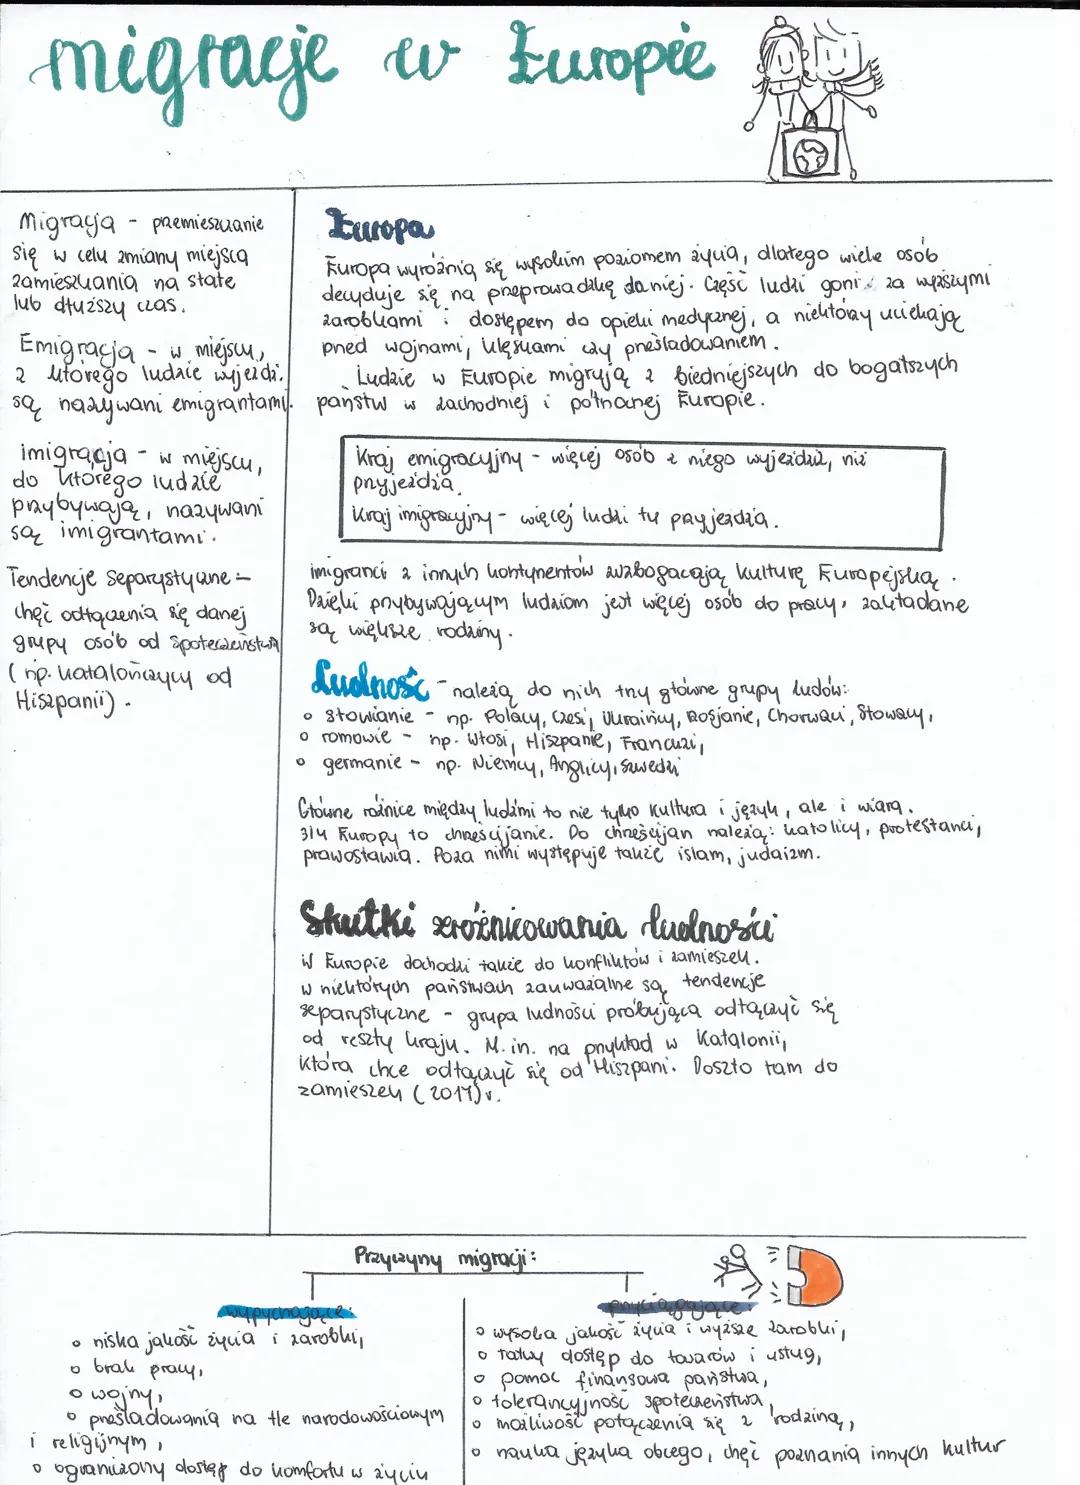 migracje w Europie
Migracja - przemieszczanie
się w celu zmiany miejsca
zamieszkania na stałe
lub dłuższy czas.
Emigracja - w miejscu,
z którego ludzie wyjeżdż.
są nazywani emigrantami.
imigracja - w miejscu,
do którego ludzie
przybywają, nazywani
są imigrantami.
Tendencje separystyczne -
chęć odłączenia się danej
grupy osób od społeczeństwa
(np. katalończycy od
Hiszpanii).
Europa
Europa wyróżnia się wysokim poziomem życia, dlatego wiele osób
decyduje się na przeprowadzkę do niej. Część ludzi goni za wyższymi
zarobkami i dostępem do opieki medycznej, a niektórzy uciekają
przed wojnami, klęskami czy prześladowaniem.
Ludzie w Europie migrują z biedniejszych do bogatszych
państw w zachodniej i północnej Europie.
Kraj emigracyjny - więcej osób z niego wyjeżdża, niż
przyjeżdża.
Kraj imigracyjny - więcej ludzi tu przyjeżdża.
imigranci z innych kontynentów wzbogacają kulturę Europejską.
Dzięki przybywającym ludziom jest więcej osób do pracy, zakładane
są większe rodziny.
Ludność - należą do nich trzy główne grupy ludów:
o słowianie - np. Polacy, Czesi, Ukraińcy, Rosjanie, Chorwaci, Słowacy,
o romowie - np. Włosi, Hiszpanie, Francuzi,
o germanie - np. Niemcy, Anglicy, Szwedzi
Główne różnice między ludźmi to nie tylko kultura i język, ale i wiara.
3/4 Europy to chrześcijanie. Do chrześcijan należą: katolicy, protestanci,
prawosławia. Poza nimi występuje także islam, judaizm.
Skutki zróżnicowania ludności
W Europie dochodzi także do konfliktów i zamieszek.
w niektórych państwach zauważalne są tendencje
separystyczne - grupa ludności próbująca odłączyć się
od reszty kraju. M.in. na przykład w Katalonii,
która chce odłączyć się od Hiszpani. Doszło tam do
zamieszek (2017)r.
Przyczyny migracji:
wypychające:
o niska jakość życia i zarobki,
o brak pracy,
o wojny,
o prześladowania na tle narodowościowym
i religijnym,
o ograniczony dostęp do komfortu w życiu
przyciągające:
o wysoka jakość życia i wyższe zarobki,
o łatwy dostęp do towarów i usług,
o pomoc finansowa państwa,
o tolerancyjność społeczeństwa,
o możliwość połączenia się z rodziną,
o nauka języka obcego, chęć poznania innych kultur